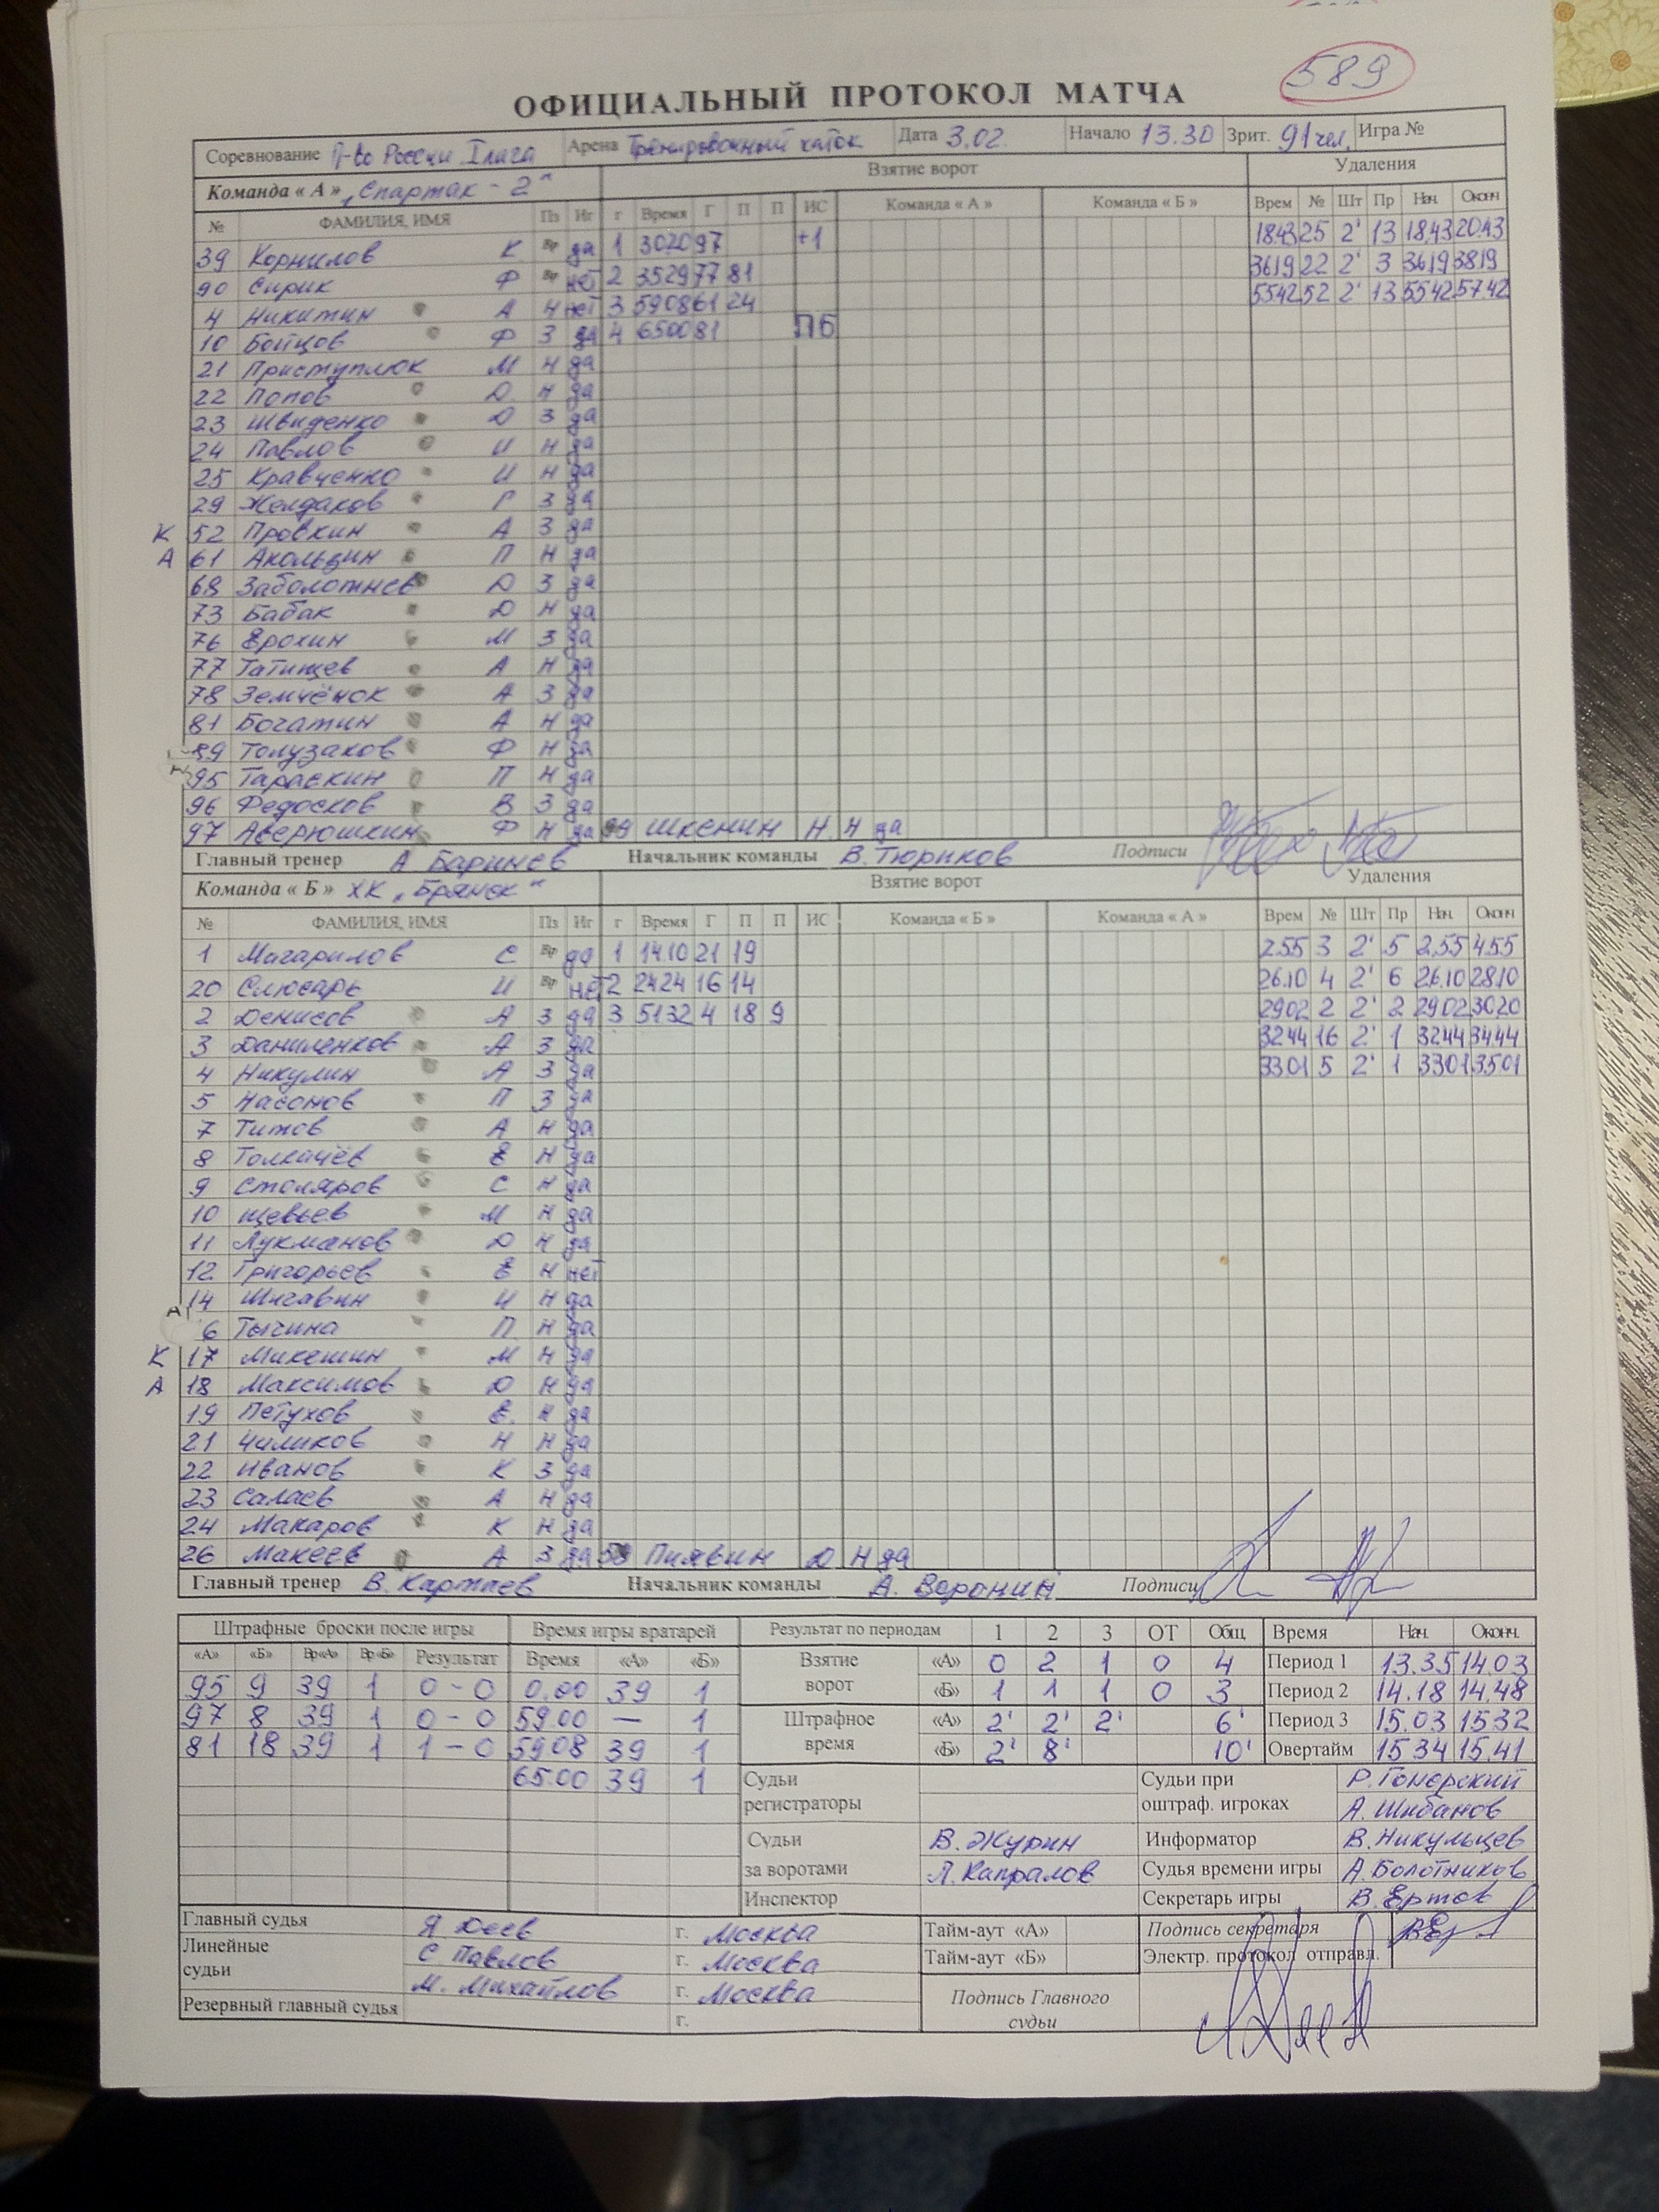 589
ОФИЦИАЛЬНЫЙ ПРОТОКОЛ МАТЧА
Соревнование П-во России I лига Арена Тренировочный каток Дата 3.02. Начало 13.30 Зрит. 91 чел. Игра №
Команда « А » „Спартак - 2" Взятие ворот Удаления
№ ФАМИЛИЯ, ИМЯ Пз Иг г Время Г П П ИС Команда « А » Команда « Б » Врем № Шт Пр Нач. Оконч
39 Корнилов К Вр да 1 3020 97 +1 1843 25 2' 13 1843 2043
90 Сирик Ф Вр нет 2 3529 77 81 3619 22 2' 3 3619 3819
4 Никитин А Н нет 3 5908 61 24 5542 52 2' 13 5542 5742
10 Бойцов Ф З да 4 6500 81 ПБ
21 Приступлюк М Н да
22 Попов D Н да
23 Швиденко D З да
24 Павлов И Н да
25 Кравченко И Н да
29 Желдаков Г З да
К 52 Провкин А З да
А 61 Акользин П Н да
68 Заболотнев D З да
73 Бабак D Н да
76 Ерохин М З да
77 Татищев А Н да
78 Земчёнок А З да
81 Богатин А Н да
89 Толузаков Ф Н да
95 Тараскин П Н да
96 Федосков В З да
97 Аверюшкин Ф Н да 99 Шкенин Н Н да
Главный тренер А. Баринев Начальник команды В. Тюриков Подписи
Команда « Б » ХК „Брянск" Взятие ворот Удаления
№ ФАМИЛИЯ, ИМЯ Пз Иг г Время Г П П ИС Команда « Б » Команда « А » Врем № Шт Пр Нач. Оконч
1 Магарилов С Вр да 1 14.10 21 19 2.55 3 2' 5 2.55 4.55
20 Слюсарь И Вр нет 2 2424 16 14 26.10 4 2' 6 26.10 28.10
2 Денисов А З да 3 5132 4 18 9 2902 2 2' 2 2902 3020
3 Даниленков А З да 3244 16 2' 1 3244 3444
4 Никулин А З да 3301 5 2' 1 3301 3501
5 Насонов П З да
7 Титов А Н да
8 Толкачёв Е Н да
9 Столяров С Н да
10 Щевьев М Н да
11 Лукманов D Н да
12 Григорьев Е Н нет
А 14 Шигавин И Н да
6 Тычина П Н да
К 17 Микешин М Н да
А 18 Максимов D Н да
19 Петухов Е. Н да
21 Чиликов Н Н да
22 Иванов К З да
23 Салаев А Н да
24 Макаров К Н да
26 Макеев А З да Пиявин D Н да
Главный тренер В. Картаев Начальник команды А. Воронин Подписи
Штрафные броски после игры Время игры вратарей Результат по периодам 1 2 3 ОТ Общ Время Нач. Оконч.
«А» «Б» Вр«А» Вр«Б» Результат Время «А» «Б» Взятие ворот «А» 0 2 1 0 4 Период 1 13.35 14.03
95 9 39 1 0-0 0.00 39 1 «Б» 1 1 1 0 3 Период 2 14.18 14.48
97 8 39 1 0-0 59.00 — 1 Штрафное время «А» 2' 2' 2' 6' Период 3 15.03 1532
81 18 39 1 1-0 5908 39 1 «Б» 2' 8' 10' Овертайм 1534 15.41
65.00 39 1 Судьи регистраторы Судьи при оштраф. игроках Р. Гонорский
А. Шибанов
Судьи за воротами В. Журин Информатор В. Никульцев
Л. Капралов Судья времени игры А. Болотников
Инспектор Секретарь игры В. Ертов
Главный судья Я Деев г. Москва Тайм-аут «А» Подпись секретаря
Линейные судьи С Павлов г. Москва Тайм-аут «Б» Электр. протокол отправл.
М. Михайлов г. Москва Подпись Главного судьи
Резервный главный судья г.